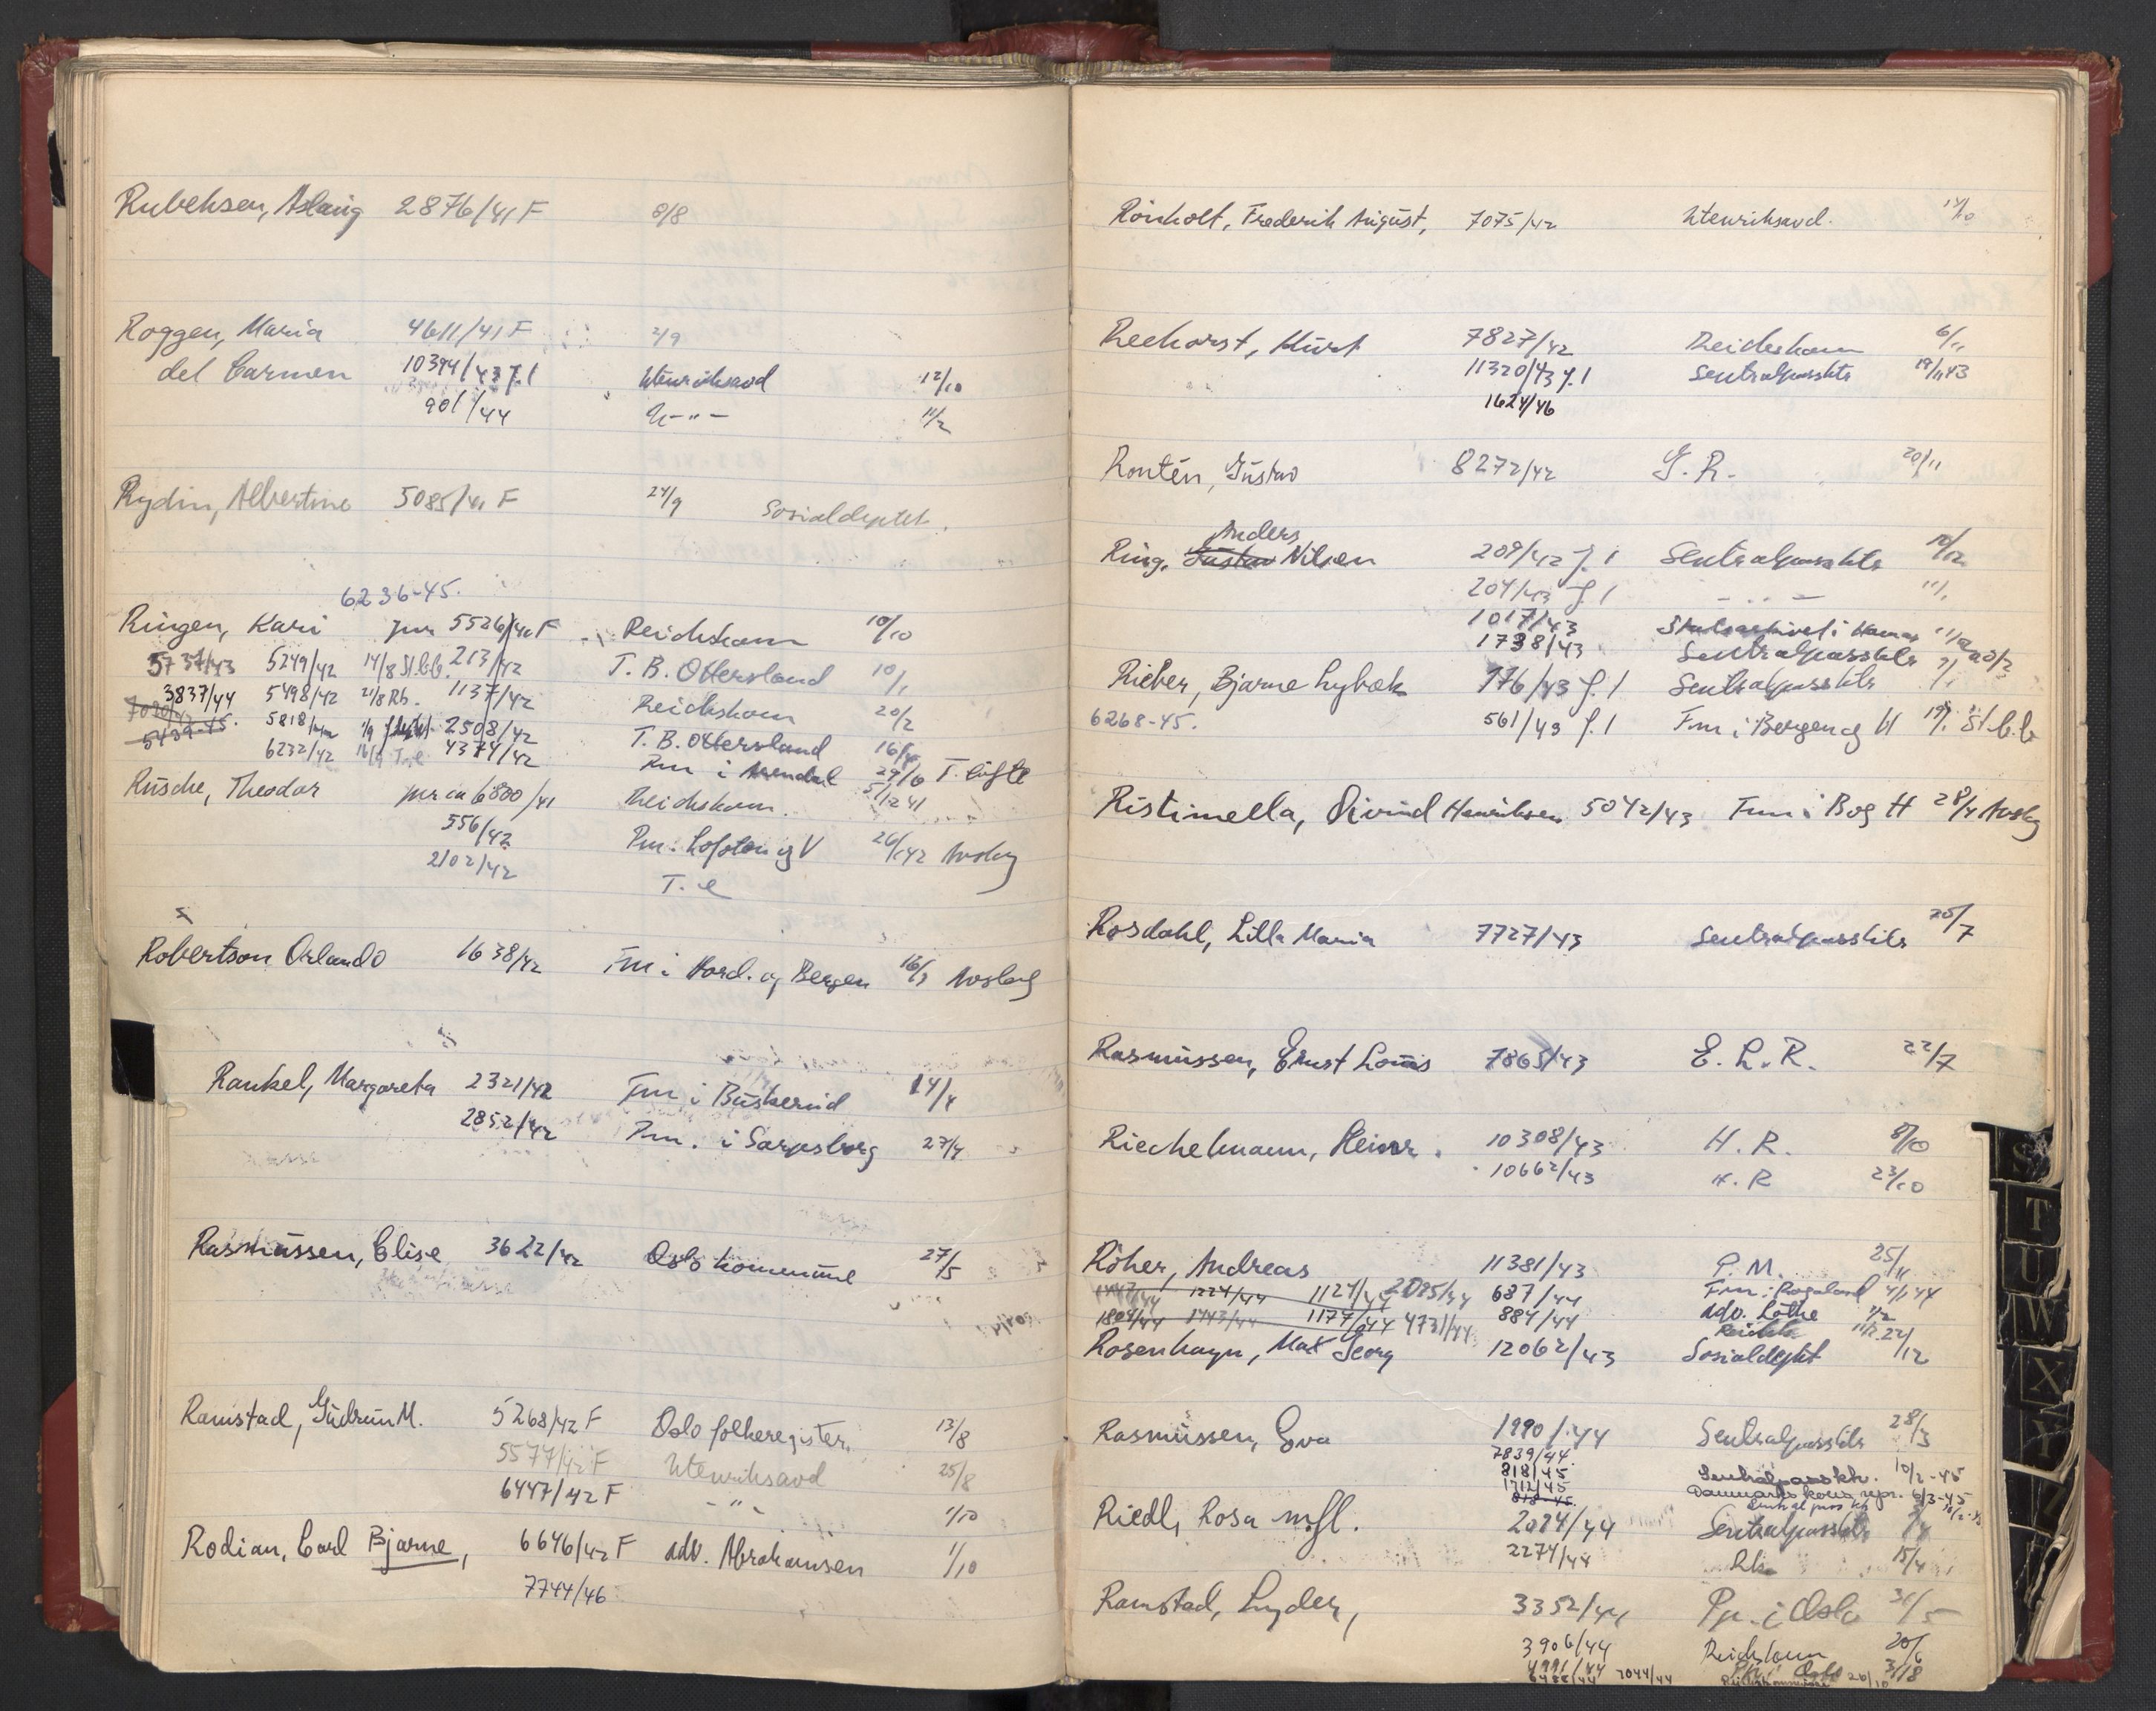 Rubeksen, Aslaug 2876/41 F 8/8
Roggen, Maria 4611/41 F 2/9
del Carmen 10394/43 J.1 Utenriksavd 12/10
901/44 — " — 11/2
Rydin, Albertine 5085/41 F 24/9 Sosialdeptet.
6236-45.
Ringen, Kari jnr 5526/41 F Reichskom 10/10
5737/43 5249/42 14/8 St.b.b. 213/42 T. B. Ottersland 10/1
3837/44 5498/42 21/8 Rb. 1137/42 Reichskom 20/2
5439-45. 5818/42 1/9 2508/42 T. B. Ottersland 16/4
6232/42 16/9 T.l 4374/42 Pm i Arendal 29/6 T. Lüfte
Rüsche, Theodor jnr ca 6800/41 Reichskom. 5/12 41
556/42 Pm. Lofoten og V 26/1 42 Avslag
2102/42 T. l
Robertson Orlando 1638/42 Fm i Hord. og Bergen 16/3 Avslag
Rankel, Margareta 2321/42 Fm i Buskerud 14/4
2852/42 Pm. i Sarpsborg 27/4
Rasmussen, Elise 3622/42 Oslo kommune 27/5
Ramstad, Gudrun M. 5268/42 F Oslo folkeregister. 13/8
5577/42 F Utenriksavd 25/8
6447/42 F - " - 1/10
Rodian, Carl Bjarne, 6646/42 F adv. Abrahamsen 1/10
7744/46
Rönholt, Frederik August, 7075/42 Utenriksavd. 14/10
Reehorst, Kurt 7827/42 Reichskom 6/11
11320/43 J.1 Sentralpasskts 19/11 43
1624/46
Rontén, Gustav 8272/42 G. R. 20/11
Anders
Ring, Gustav Nilsen 209/42 J.1 Sentralpasskts 10/12
204/43 J.1 - " - 11/1
1017/43 Statsarkivet i Hamar
1738/43 Sentralpasskts
Rieber, Bjarne Lybæk 176/43 J.1 Sentralpasskts
6268-45. 561/43 J.1 Fm i Bergen og H 19/1 St.b.b
Ristimella, Øivind Henriksen 5042/43 Fm i B og H 28/4 Avslag
Rosdahl, Lilla Maria 7727/43 Sentralpasskts 20/7
Rasmussen, Ernst Louis 7865/43 E. L. R. 22/7
Riechelmann, Heinr. 10308/43 H. R. 8/10
10662/43 H. R 23/10
Röher, Andreas 11381/43 P. M. 25/11
1447/44 1224/44 1124/44 2025/44 687/44 Fm i Rogaland 4/1 44
1804/44 1443/44 1174/44 4731/44 884/44 adv. Löthe
Rosenhayn, Max Georg 12062/43 Sosialdeptet 22/12
Rasmussen, Eva 1990/44 Sentralpasskts 28/3
2839/44
818/45 Sentralpasskts. 10/2-45
1712/45 Danmarks kons. repr. 6/3-45
818-45.
Riedl, Rosa mfl. 2084/44 Sentralpasskts
2274/44 Rk. 15/4
Ramstad, Lyder, 3352/44 Pp. i Oslo 31/5
3906/44 Reichskom 20/6
4991/44 Pp. i Oslo 31/8
6488/44 7044/44 20/10
T
U
W
X
Y
Z